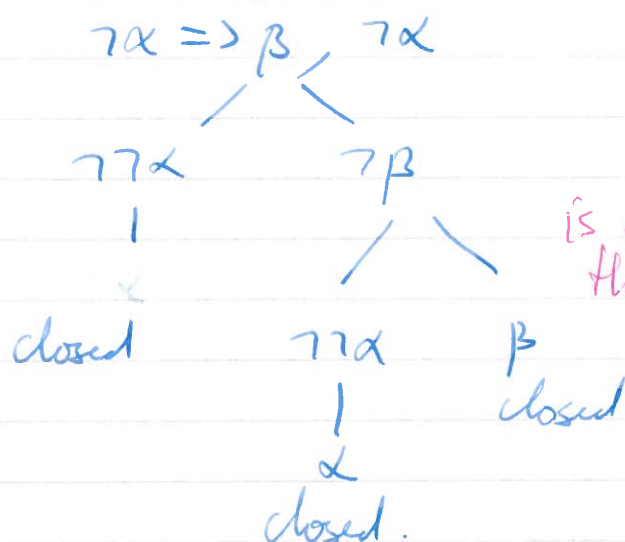 ¬α => β, ¬α
¬¬α ¬β
is
α
closed ¬¬α β
closed
α
closed.